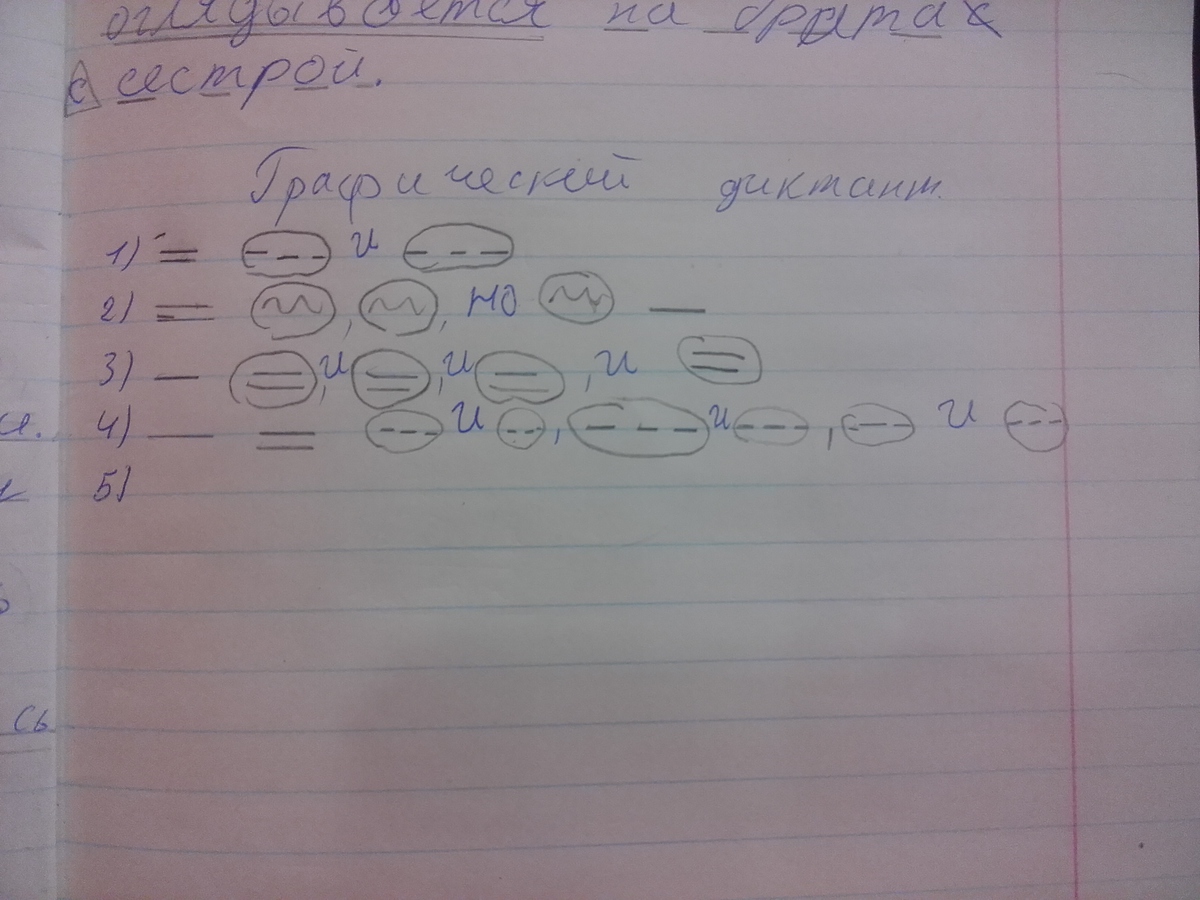 оглядывается на брата х
с сестрой.
Графический диктант.
1) и
2) , , но
3) , и , и , и
и. 4) и , и , и
5)
сь